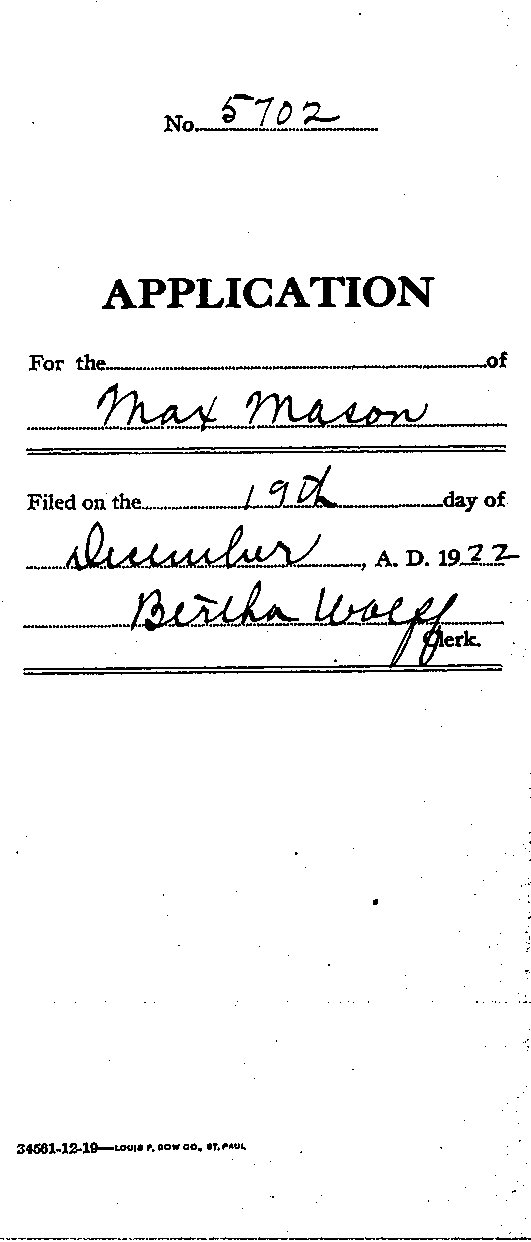 No. 5702
APPLICATION
For the of
Max Mason
Filed on the 19th day of
December, A. D. 1922
Bertha Wolff
Clerk.
34561-12-19—LOUIS F. DOW CO., ST. PAUL